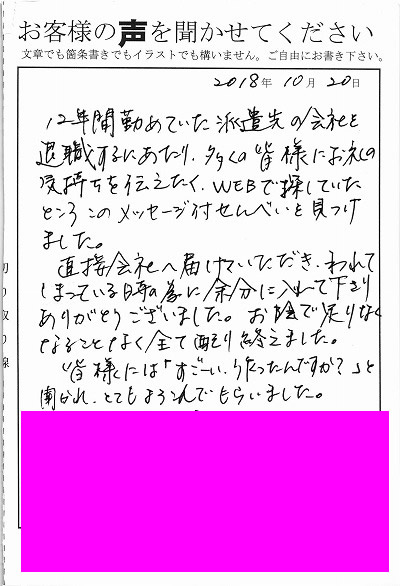 お客様の声を聞かせてください
文章でも箇条書きでもイラストでも構いません。ご自由にお書き下さい。
2018年 10月 20日
12年間勤めていた派遣先の会社を
退職するにあたり、多くの皆様にお礼の
気持ちを伝えたく、WEBで探していた
ところこのメッセージ付せんべいを見つけ
ました。
直接会社へ届けていただき、われて
しまっている時の為に余分に入れて下さり
ありがとうございました。お陰で足りなく
なることなく全て配り終えました。
皆様には「すごーい、作ったんですか?」と
聞かれ、とてもよろこんでもらいました。
切り取り線